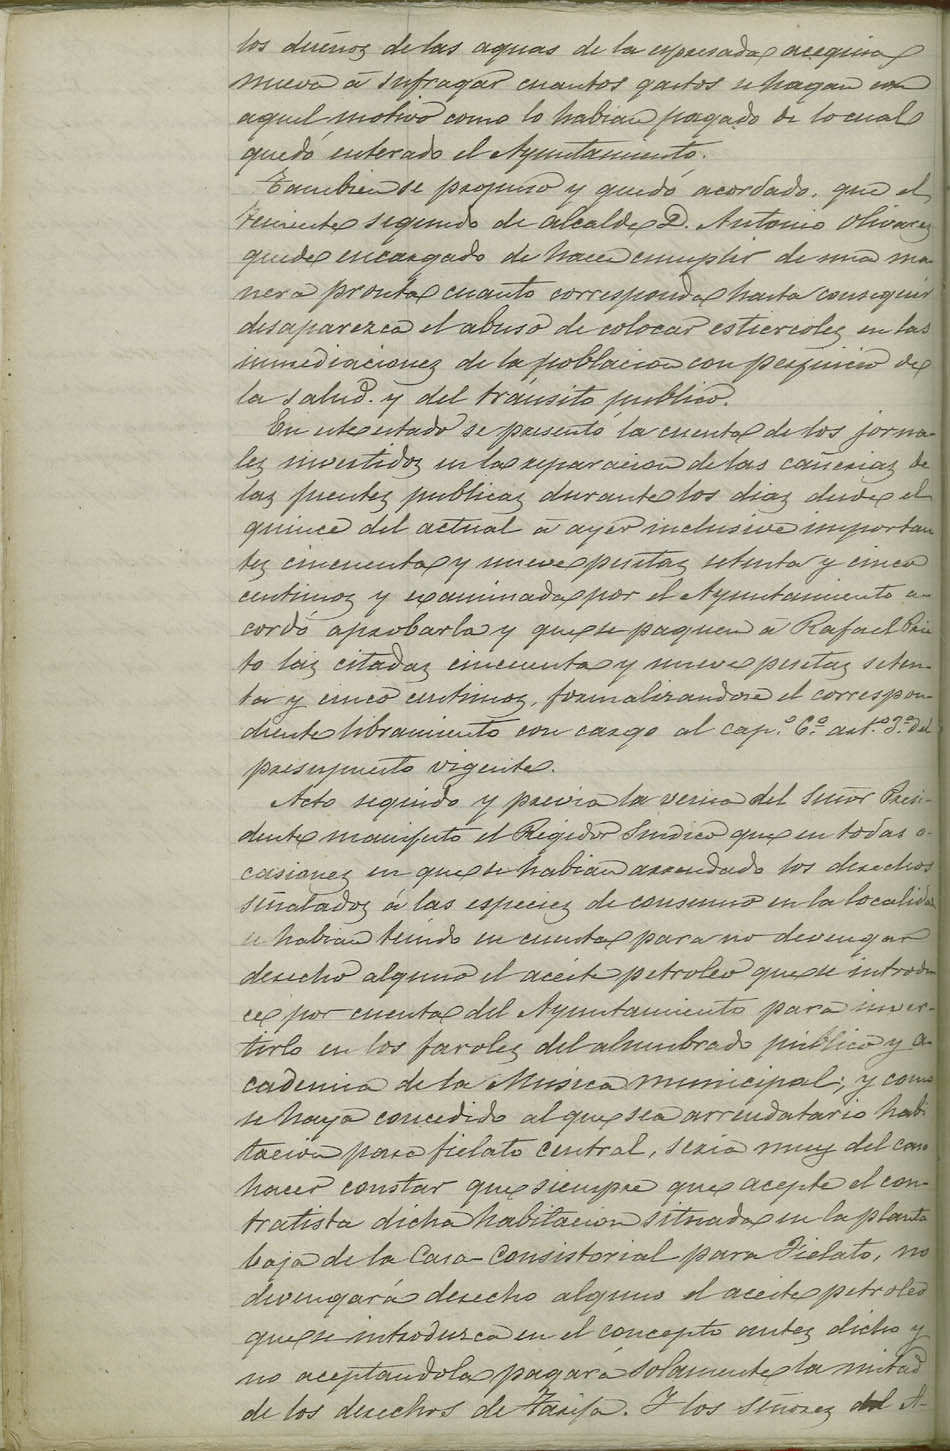 los dueños de las aguas de la espresada acequia
nueva á sufragar cuantos gastos se hagan con
aquel motivo como lo habian pagado de lo cual
quedó enterado el Ayuntamiento.
Tambien se propuso y quedó acordado, que el
Teniente segundo de alcalde D. Antonio Olivarez
quede encargado de hacer cumplir de una ma-
nera pronta cuanto corresponda hasta conseguir
desaparezca el abuso de colocar estiercolez en las
inmediacionez de la poblacion con perjuicio de
la salud. y del tránsito publico.
En este estado se presentó la cuenta de los jorna-
lez invertidoz en la reparacion de las cañeriaz de
laz fuentez publicaz durante los diaz desde el
quince del actual á ayer inclusive importan
tez cincuenta y nueve pesetaz setenta y cinco
centimoz y examinada por el Ayuntamiento a-
cordó aprobarla y que se paguen á Rafael Prie
to laz citadaz cincuenta y nueve pesetaz seten-
ta y cinco centimoz, formalizandose el correspon-
diente libramiento con cargo al cap.º 6.º art.º 3.º del
presupuesto vigente.
Acto seguido y previa la venia del Señor Presi-
dente manifestó el Regidor Sindico que en todas o-
casionez en que se habian arrendado los derechos
señaladoz á las especiez de consumo en la localidad
se habian tenido en cuenta para no devengar
derecho alguno el aceite petroleo que se introdu
ce por cuenta del Ayuntamiento para inver-
tirlo en los farolez del alumbrado público y a-
cademia de la Musica municipal; y como
se haya concedido al que sea arrendatario habi
tacion para fielato central, seria muy del caso
hacer constar que siempre que acepte el con-
tratista dicha habitacion situada en la planta
baja de la Casa-Consistorial para Fielato, no
devengará derecho alguno el aceite petroleo
que se introduzca en el concepto antez dicho y
no aceptandola pagará solamente la mitad
de los derechos de Tarifa. Y los Señorez del A-